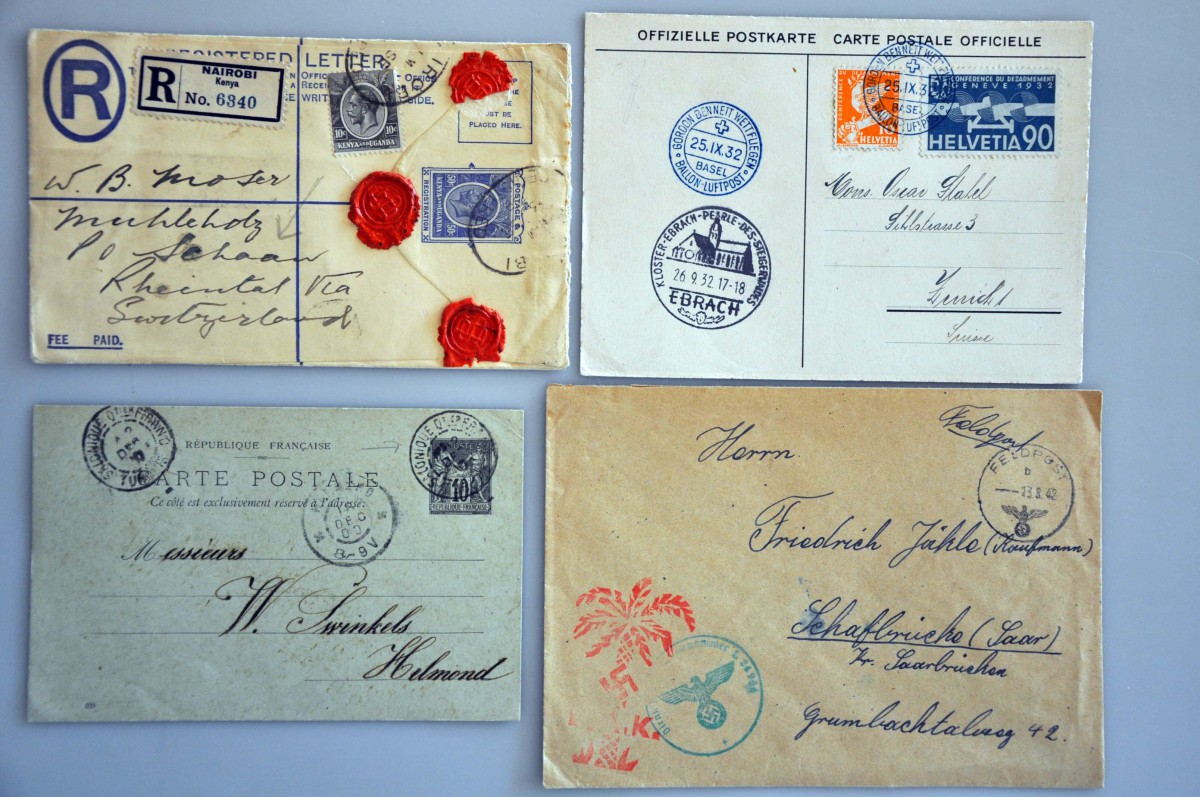 REGISTERED LETTER
R
R
NAIROBI
Kenya
No. 6340
10c 10c
KENYA AND UGANDA
BE PLACED HERE.
REGISTRATION
POSTAGE
KENYA AND UGANDA
50c 50c
W. B. Moser
Muhleholz
PO Schaan
Rheintal Via
Switzerland
FEE PAID.
OFFIZIELLE POSTKARTE CARTE POSTALE OFFICIELLE
CONFERENCE DU DESARMEMENT
GENEVE 1932
HELVETIA
HELVETIA 90
GORDON BENNETT WETTFLIEGEN
25.IX.32
BASEL
BALLON-LUFTPOST
GORDON BENNETT WETTFLIEGEN
25.IX.32
BASEL
BALLON-LUFTPOST
KLOSTER-EBRACH-PERLE-DES-STEIGERWALDES
26.9.32.17-18
EBRACH
Mons. Oscar Stahel
Sihlstrasse 3
Zurich
Suisse
RÉPUBLIQUE FRANÇAISE
CARTE POSTALE
Ce côté est exclusivement réservé à l'adresse.
POSTES
10
RÉPUBLIQUE FRANÇAISE
DEC
00
8-9V
Messieurs
W. Swinkels
Helmond
Feldpost
FELDPOST
b
13.8.42
Herrn
Friedrich Jähle (Kaufmann)
Schafbrücke (Saar)
Kr. Saarbrücken
Grumbachtalweg 42.